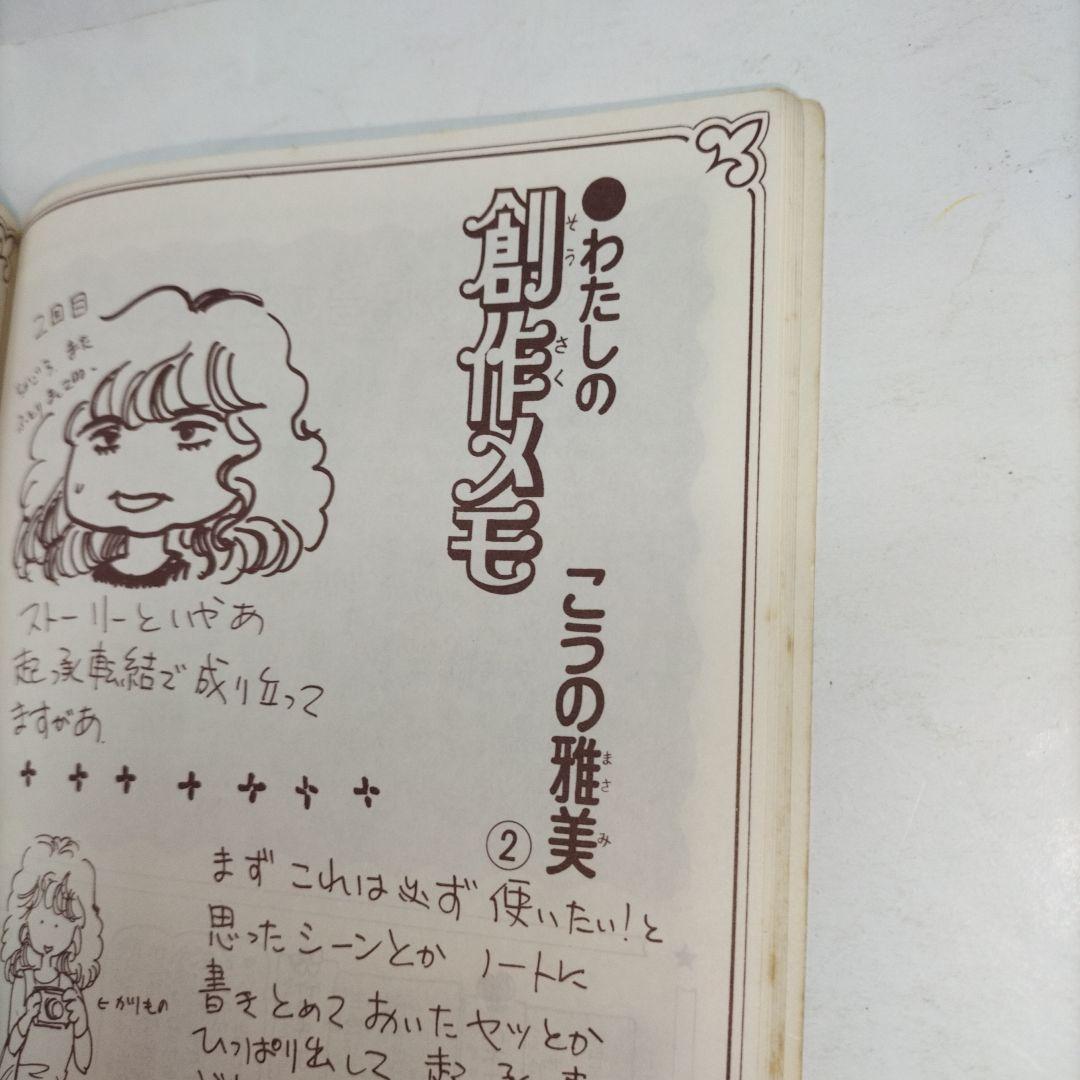 ●わたしの
創作メモ
そうさく
こうの雅美
まさみ
②
2回目
また
ストーリーといやあ
起承転結で成り立って
ますがあ
まずこれは必ず使いたい!と
思ったシーンとかノートに
書きとめておいたヤツとか
ひっぱり出して起承
←がりもの